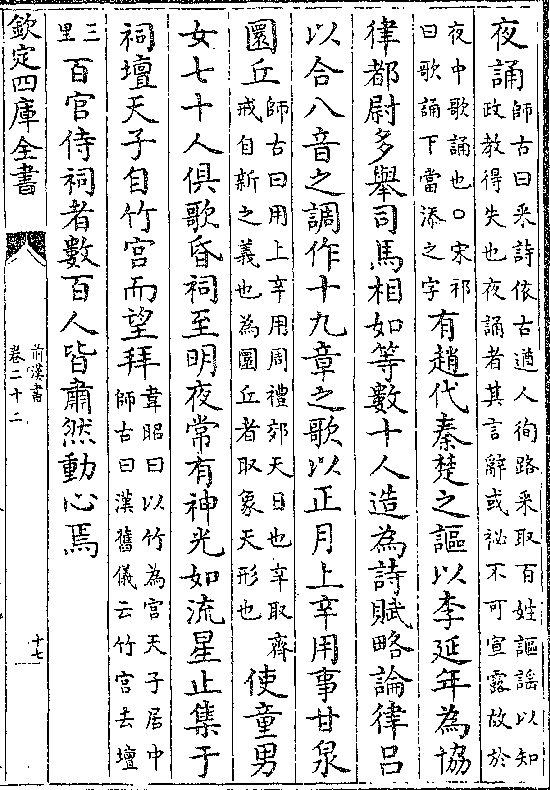 夜誦師古曰采詩依古遒人徇路采取百姓謳謠以知
政教得失也夜誦者其言辭或袐不可宣露故於
夜中歌誦也〇宋祁
曰歌誦下當添之字有趙代秦楚之謳以李延年為協
律都尉多舉司馬相如等數十人造為詩賦略論律呂
以合八音之調作十九章之歌以正月上辛用事甘泉
圜丘師古曰用上辛用周禮郊天日也辛取齊
戒自新之義也為圜丘者取象天形也使童男
女七十人俱歌昏祠至明夜常有神光如流星止集于
祠壇天子自竹宮而望拜韋昭曰以竹為宮天子居中
師古曰漢舊儀云竹宮去壇
三
里百官侍祠者數百人皆肅然動心焉
欽定四庫全書
前漢書
卷二十二
十七